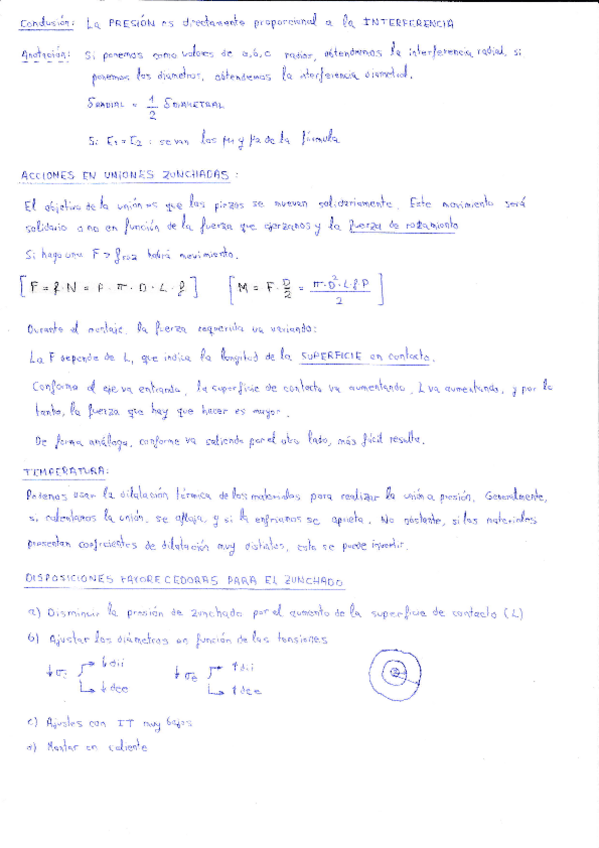 Conclusión: La PRESIÓN es directamente proporcional a la INTERFERENCIA
Anotación: Si ponemos como valores de a, b, c radios, obtendremos la interferencia radial, si
ponemos los diametros, obtendremos la interferencia diametral.
δRADIAL = 1/2 δDIAMETRAL
Si E1 = E2 : se van los μ1 y μ2 de la fórmula
ACCIONES EN UNIONES ZUNCHADAS:
El objetivo de la unión es que las piezas se muevan solidariamente. Este movimiento será
solidario o no en función de la fuerza que ejerzamos y la fuerza de rozamiento
Si hago una F > froz habrá movimiento.
[F = f·N = P·π·D·L·f] [M = F·D/2 = π·D²·L·f·P / 2]
Durante el montaje, la fuerza requerida va variando:
La F depende de L, que indica la longitud de la SUPERFICIE en contacto.
Conforme el eje va entrando, la superficie de contacto va aumentando, L va aumentando, y por lo
tanto, la fuerza que hay que hacer es mayor.
De forma análoga, conforme va saliendo por el otro lado, más fácil resulta.
TEMPERATURA:
Podemos usar la dilatación térmica de los materiales para realizar la unión a presión. Generalmente,
si calentamos la unión, se afloja, y si la enfriamos se aprieta. No obstante, si los materiales
presentan coeficientes de dilatación muy distintos, esto se puede invertir.
DISPOSICIONES FAVORECEDORAS PARA EL ZUNCHADO
a) Disminuir la presión de zunchado por el aumento de la superficie de contacto (L)
b) Ajustar los diámetros en función de las tensiones
↓σi ↓dii ↓σe ↑dii
↓dee ↑dee
c) Ajustes con IT muy bajos
d) Montar en caliente